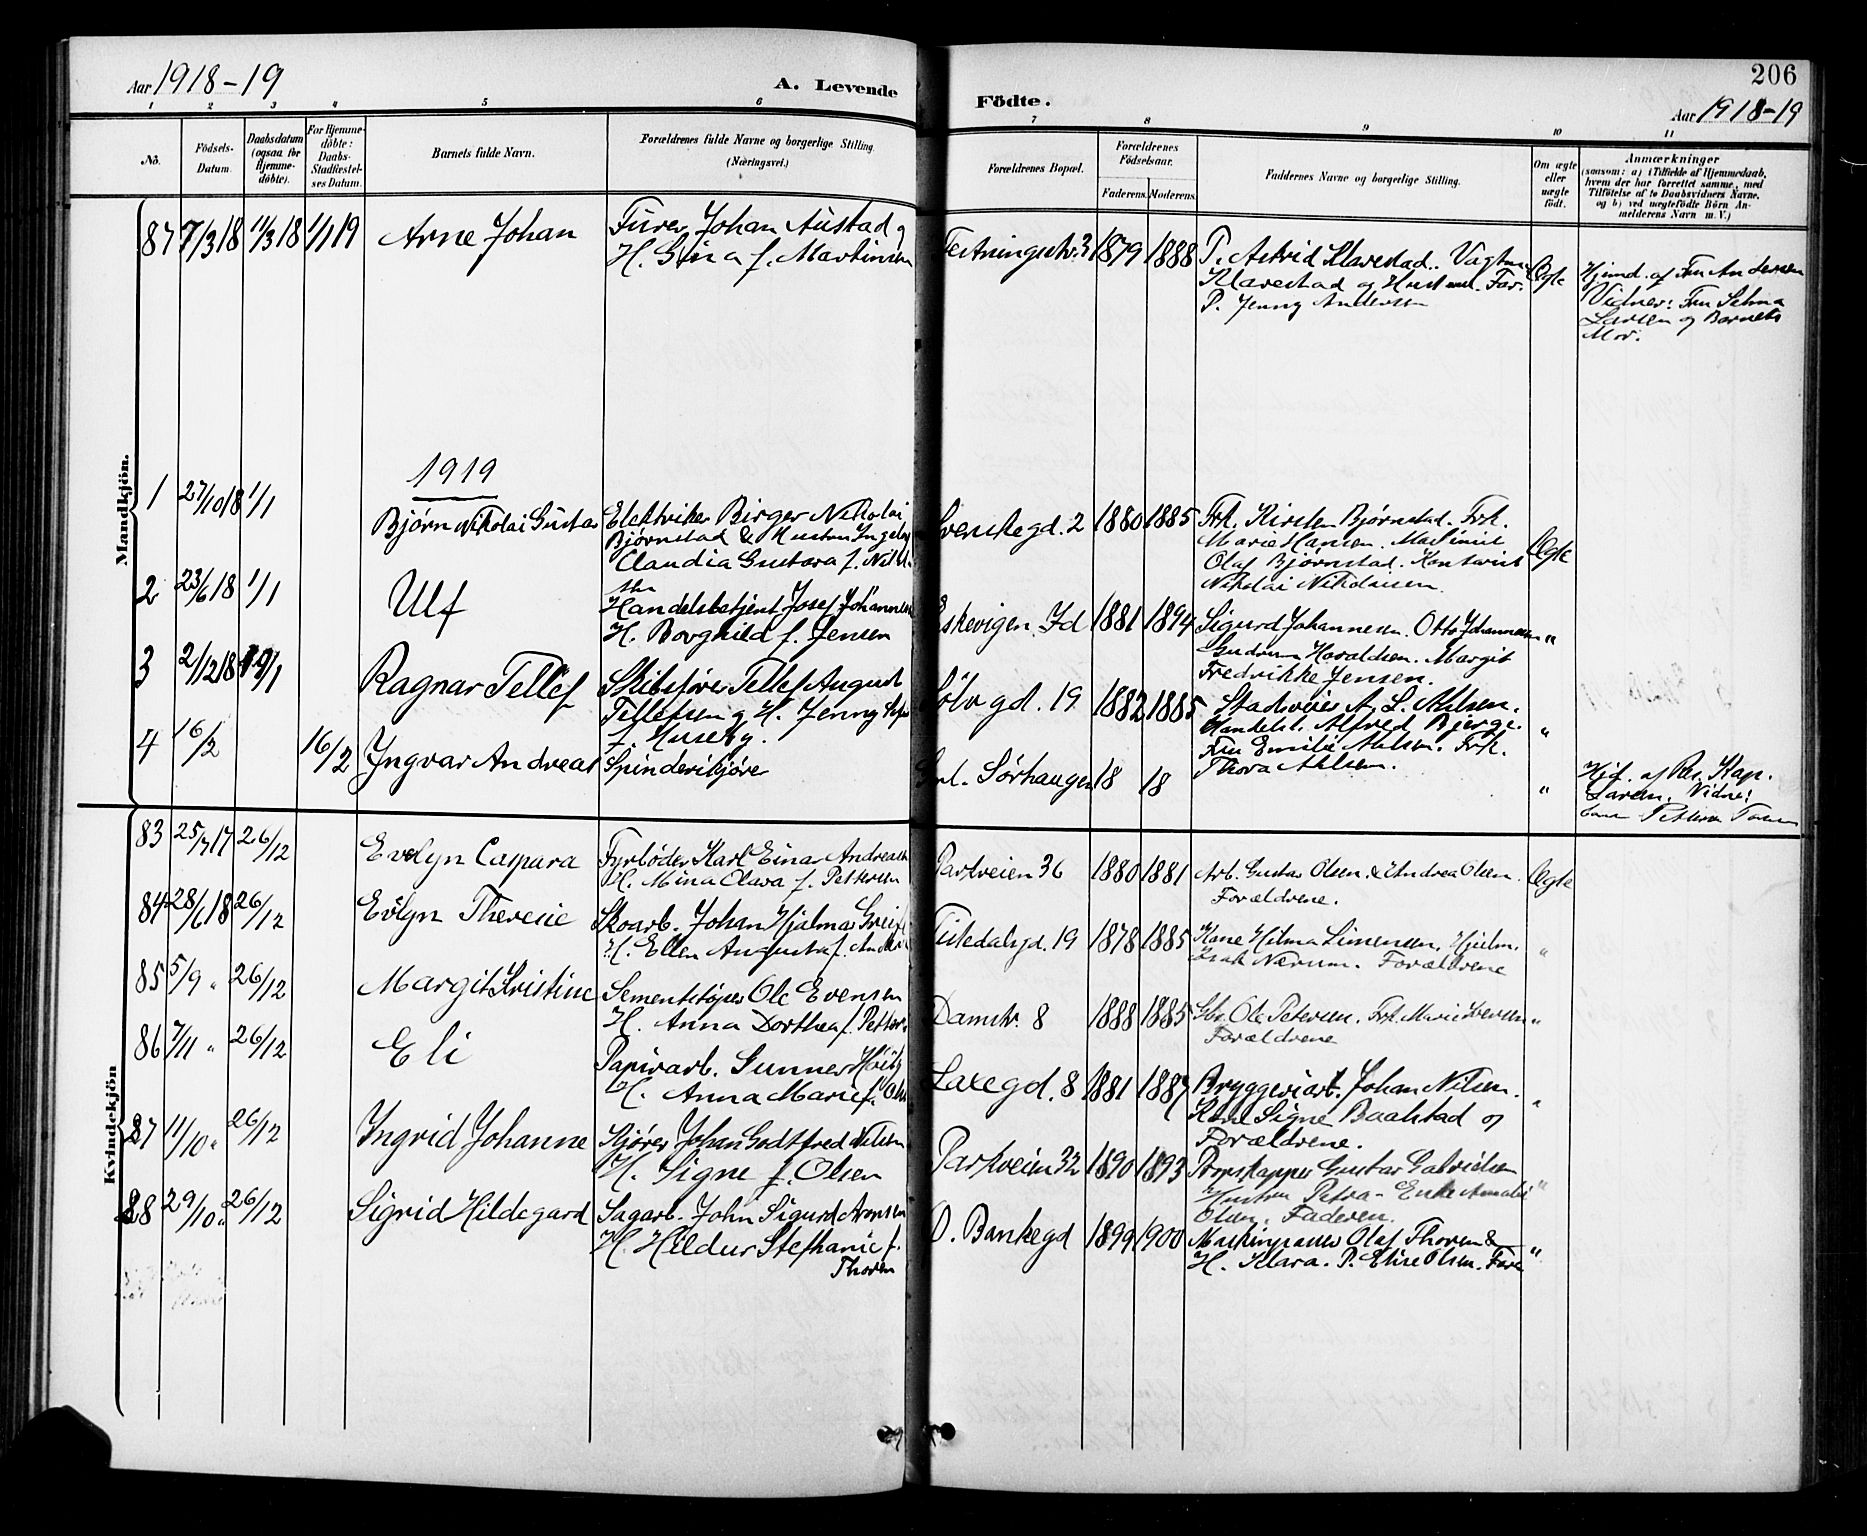 206
Aar 1918-19
A. Levende
Födte.
Aar 1918-19
1 2 3 4 5 6 7 8 9 10 11
Nö.
Födsels-
Datum.
Daabsdatum
(ogsaa for
Hjemme-
döbte).
For Hjemme-
döbte:
Daabs-
Stadfæstel-
ses Datum.
Barnets fulde Navn.
Forældrenes fulde Navne og borgerlige Stilling.
(Næringsvei.)
Forældrenes Bopæl.
Forældrenes
Födselsaar.
Faderens. Moderens.
Faddernes Navne og borgerlige Stilling.
Om ægte
eller
uægte
født.
Anmærkninger
(saasom: a) i Tilfælde af Hjemmedaab,
hvem der har forrettet samme, med
Tilföielse af to Daabsvidners Navne,
og b) ved uægtefödte Börn An-
melderens Navn m. V.)
Mandkjön.
87 7/3 18 11/3 18 1/1 19 Arne Johan
Furer Johan Austad g
H. Gina f. Martinsen
Festningsstr. 3 1879 1888
P. Astrid Klavestad. Vagtm.
Klavestad og Hustru. Far.
P. Jenny Andersen
Ægte
Hjemd. af Fru Andersen
Vidner: Fru Selma
Larsen og Barnets
Mor.
1919
1 27/10 18 1/1
Bjørn Nikolai Gustav
Elektriker Birger Nikolai
Bjørnstad & Hustru Ingeborg
Claudia Gustava f. Nikol.
Svenskegd. 2 1880 1885
Frk. Kirsten Bjørnstad. Frk.
Marie Hansen. Maskinist
Olaf Bjørnstad. Kontorist
Nikolai Nikolaisen
Ægte
2 23/6 18 1/1 Ulf
Handelsbetjent Josef Johannesen
H. Borghild f. Jensen
Eskevigen. Id 1881 1894
Sigurd Johannesen. Otto Johannesen
Gudrun Haraldsen. Margit
Fredrikke Jensen.
"
3 2/12 18 19/1 Ragnar Tellef
Skibsfører Tellef August
Tellefsen g H. Jenny
f. Huseby.
Sölvgd. 19 1882 1885
A. L. Ahlsen.
Handelsb. Alfred Bjerge.
Fru Emilie Ahlsen. Frk.
Thora Ahlsen.
"
4 16/2 16/2 Ingvar Andreas
Spinderikjører
Gml. Sørhaugen 18 18
"
Hjd. af Res. Kap.
Larsen. Vidne:
Kvindekjön
83 25/7 17 26/12 Evelyn Caspara
Fyrbøder Karl Einar Andreasen
H. Mina Olava f. Pettersen
Parkveien 36 1880 1881
Arb. Gustav Olsen. & Andrea Olsen.
Forældrene.
Ægte
84 28/6 18 26/12 Evelyn Therese
Skoarb. Johan Hjalmar Greif
H. Ellen Augusta f. Anders
Tistedalsgd. 19 1878 1885
Kone Hilma Simensen. Hjalm.
Isak Nærum. Forældrene
"
85 5/9 " 26/12 Margit Kristine
Sementstøper Ole Evensen
H. Anna Dorthea f. Petters
Damstr. 8 1888 1885
Gbr. Ole Petersen. Frk. Marie Svensen
Forældrene
"
86 7/11 " 26/12 Eli
Papirarb. Gunner
H. Anna Marie f. Ols
Laxegd. 8 1881 1887
Bryggeriarb. Johan Nilsen.
Kone Signe Baalstad og
Forældrene.
"
87 11/10 " 26/12 Ingrid Johanne
Kjører Johan Godtfred Nilsen
H. Signe f. Olsen
Parkveien 32 1890 1893
Gustav Gabrielsen
Hustru Petra - Enke Amalie
Olsen. Faderen.
"
88 29/10 " 26/12 Sigrid Hildegard
Sagarb. John Sigurd Aronsen
H. Hildur Stefhanie f.
Thoren
O. Bankegd 1899 1900
Maskinpasser Olaf Thoren &
H. Klara. P. Elise Olsen. Fore
"